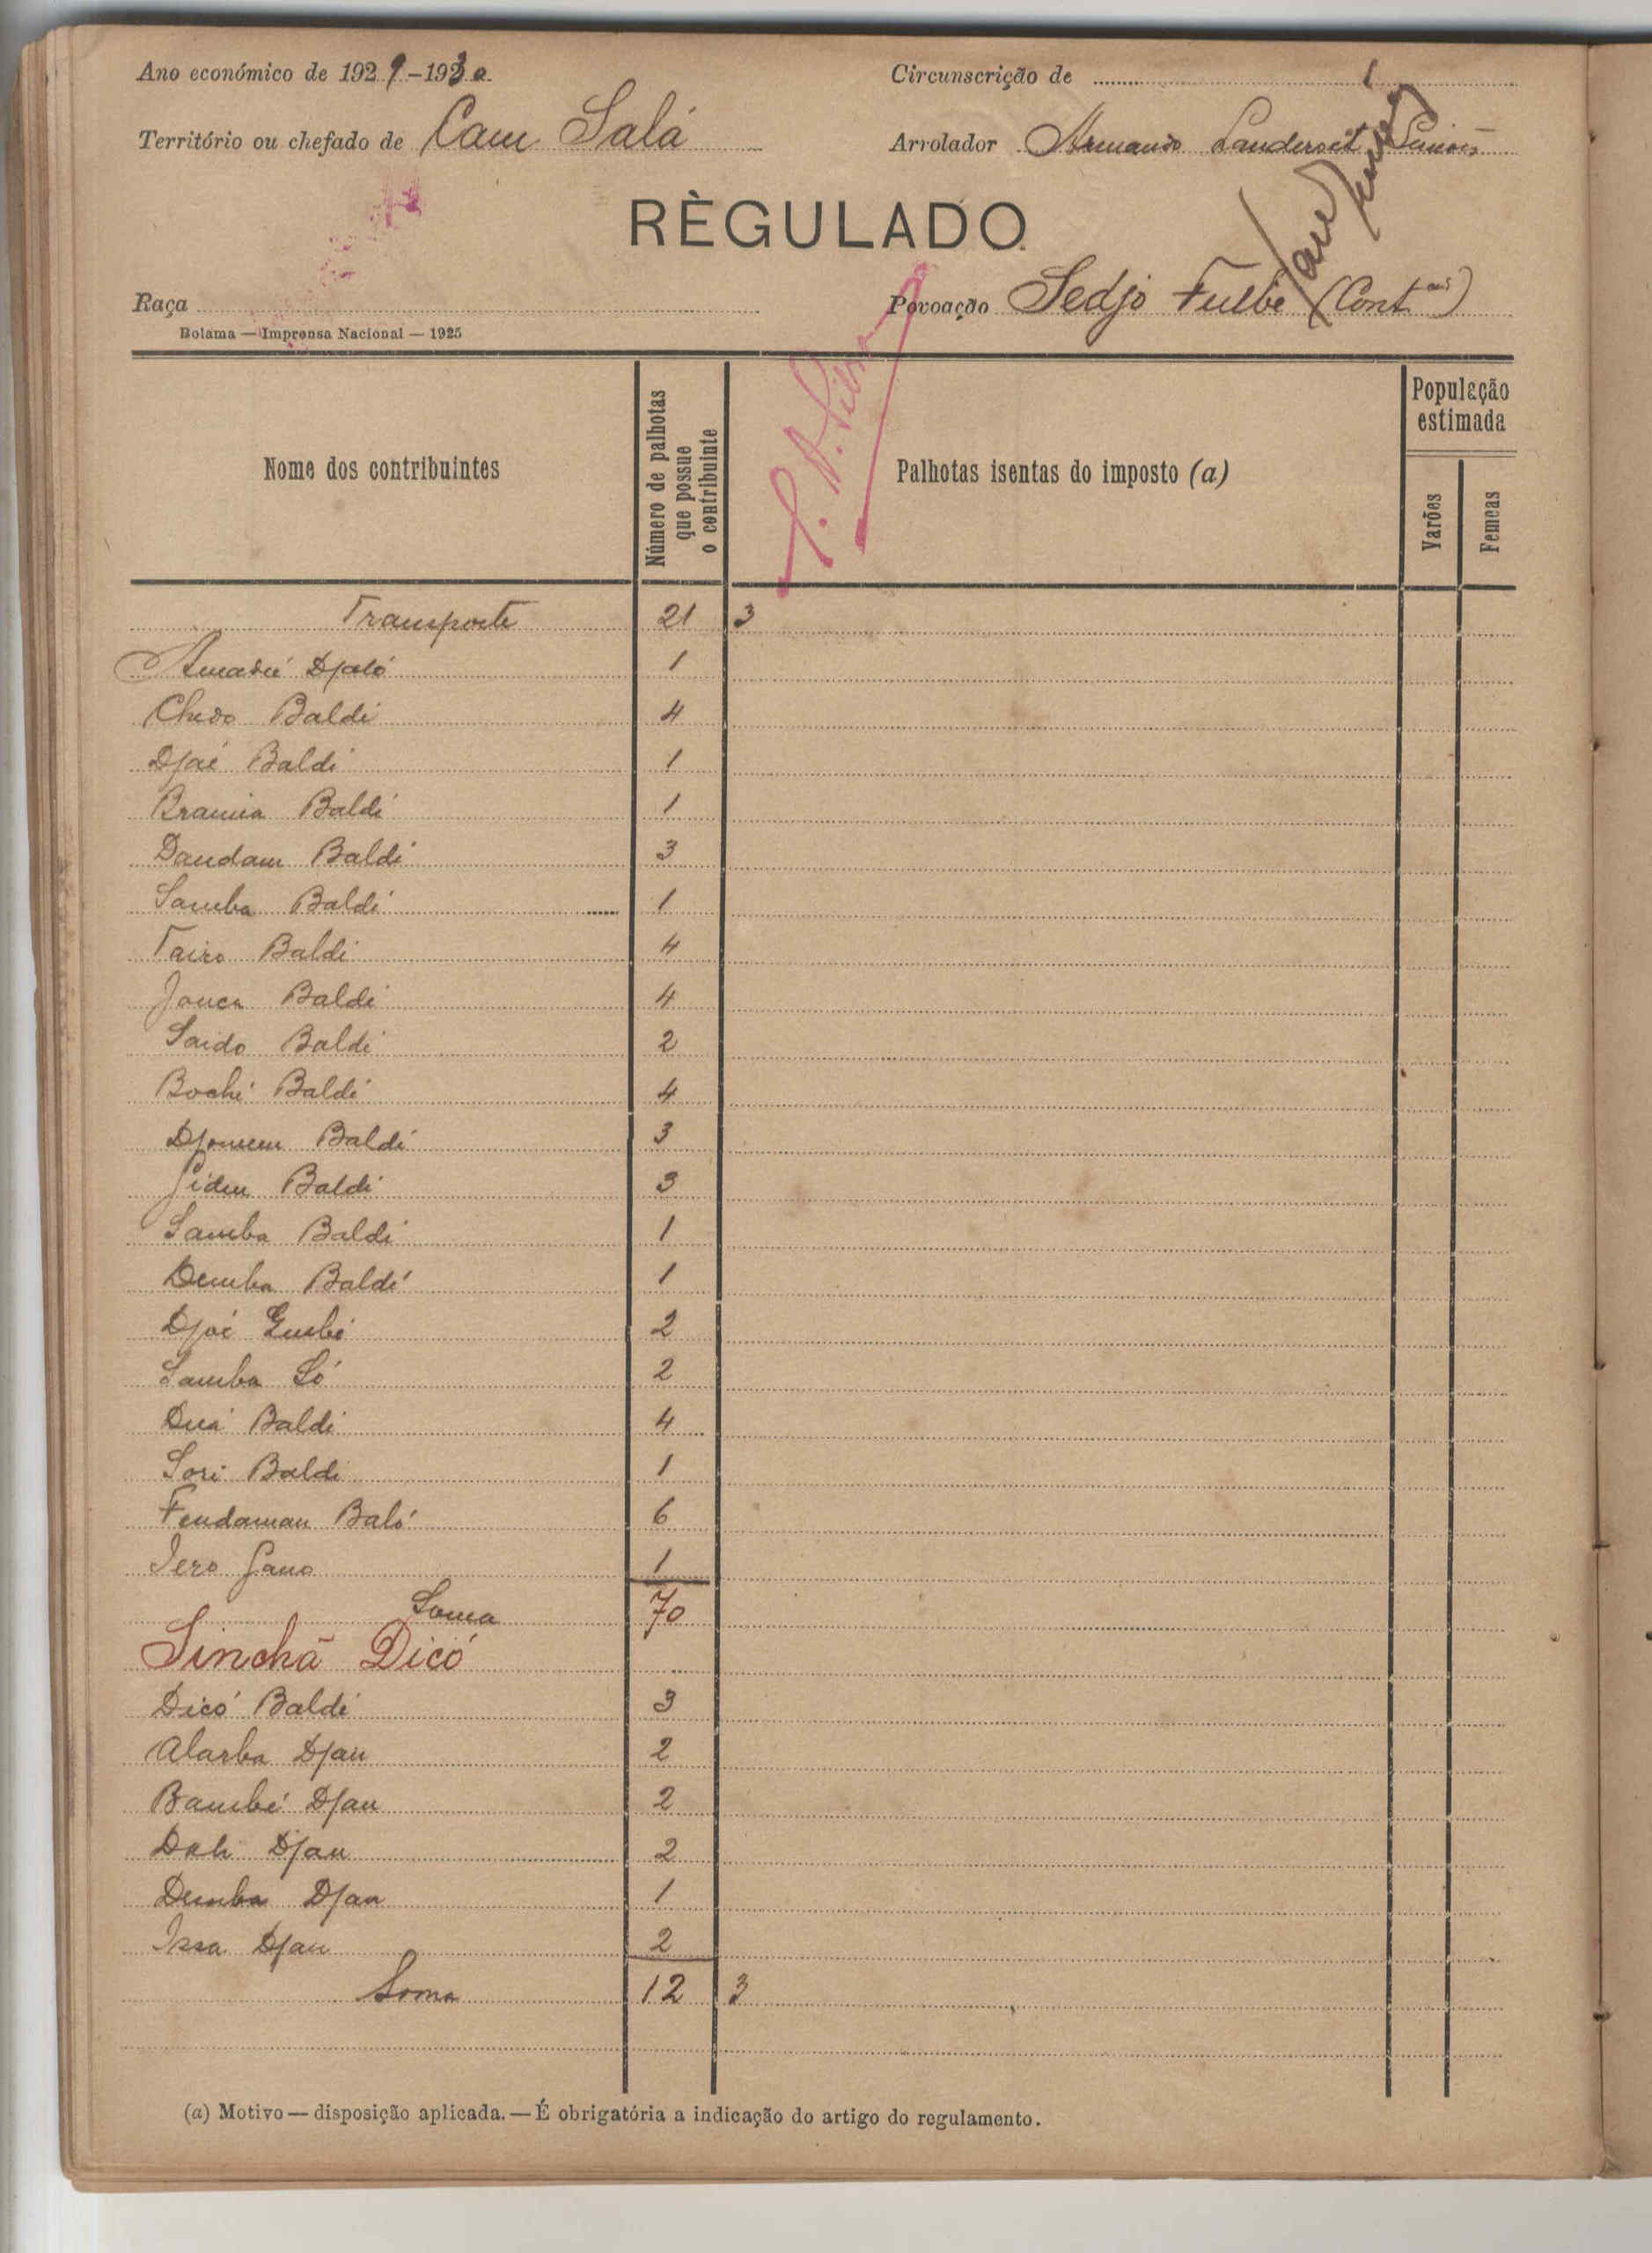 Ano económico de 1929-1930
Circunscrição de
Território ou chefado de Cam Salá
Arrolador Armando
RÈGULADO
Raça
Povoação Sedjo Fulbe (Cont.)
Bolama — Imprensa Nacional — 1925
Nome dos contribuintes
Número de palhotas que possue o contribuinte
Palhotas isentas do imposto (a)
População estimada
Varões
Femeas
Transporte 21 3
Amadú Djaló 1
Chedo Baldé 4
Djaé Baldé 1
Bramia Baldé 1
Dandam Baldé 3
Samba Baldé 1
Tairo Baldé 4
Jouca Baldé 4
Saido Baldé 2
Boché Baldé 4
Baldé 3
Baldé 3
Samba Baldé 1
Demba Baldé 1
Djaé Embé 2
Samba Só 2
Duá Baldé 4
Sori Baldé 1
Fendaman Baló 6
Iero Gano 1
Soma 70
Sinchã Dicó
Dicó Baldé 3
Alarba Djau 2
Bambé Djau 2
Djau 2
Demba Djau 1
Issa Djau 2
Soma 12 3
(a) Motivo — disposição aplicada. — É obrigatória a indicação do artigo do regulamento.